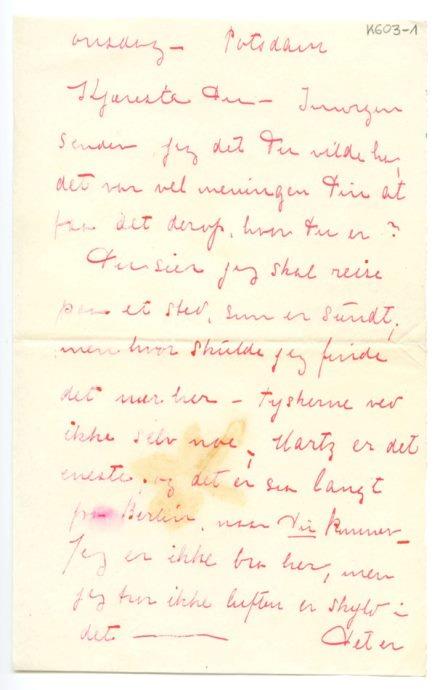 K603-1
onsdag - Potsdam
Kjæreste Du - Imorgen
sender jeg det Du vilde ha,
det var vel meningen Din at
faa det derop, hvor Du er?
Du sier jeg skal reise
paa et sted, som er sundt,
men hvor skulde jeg finde
det nær her - tyskerne ved
ikke selv noe, Hartz er det
eneste, og det er saa langt
fra Berlin, naar Du kommer-
Jeg er ikke bra her, men
jeg tror ikke luften er skyld i
det — Det er